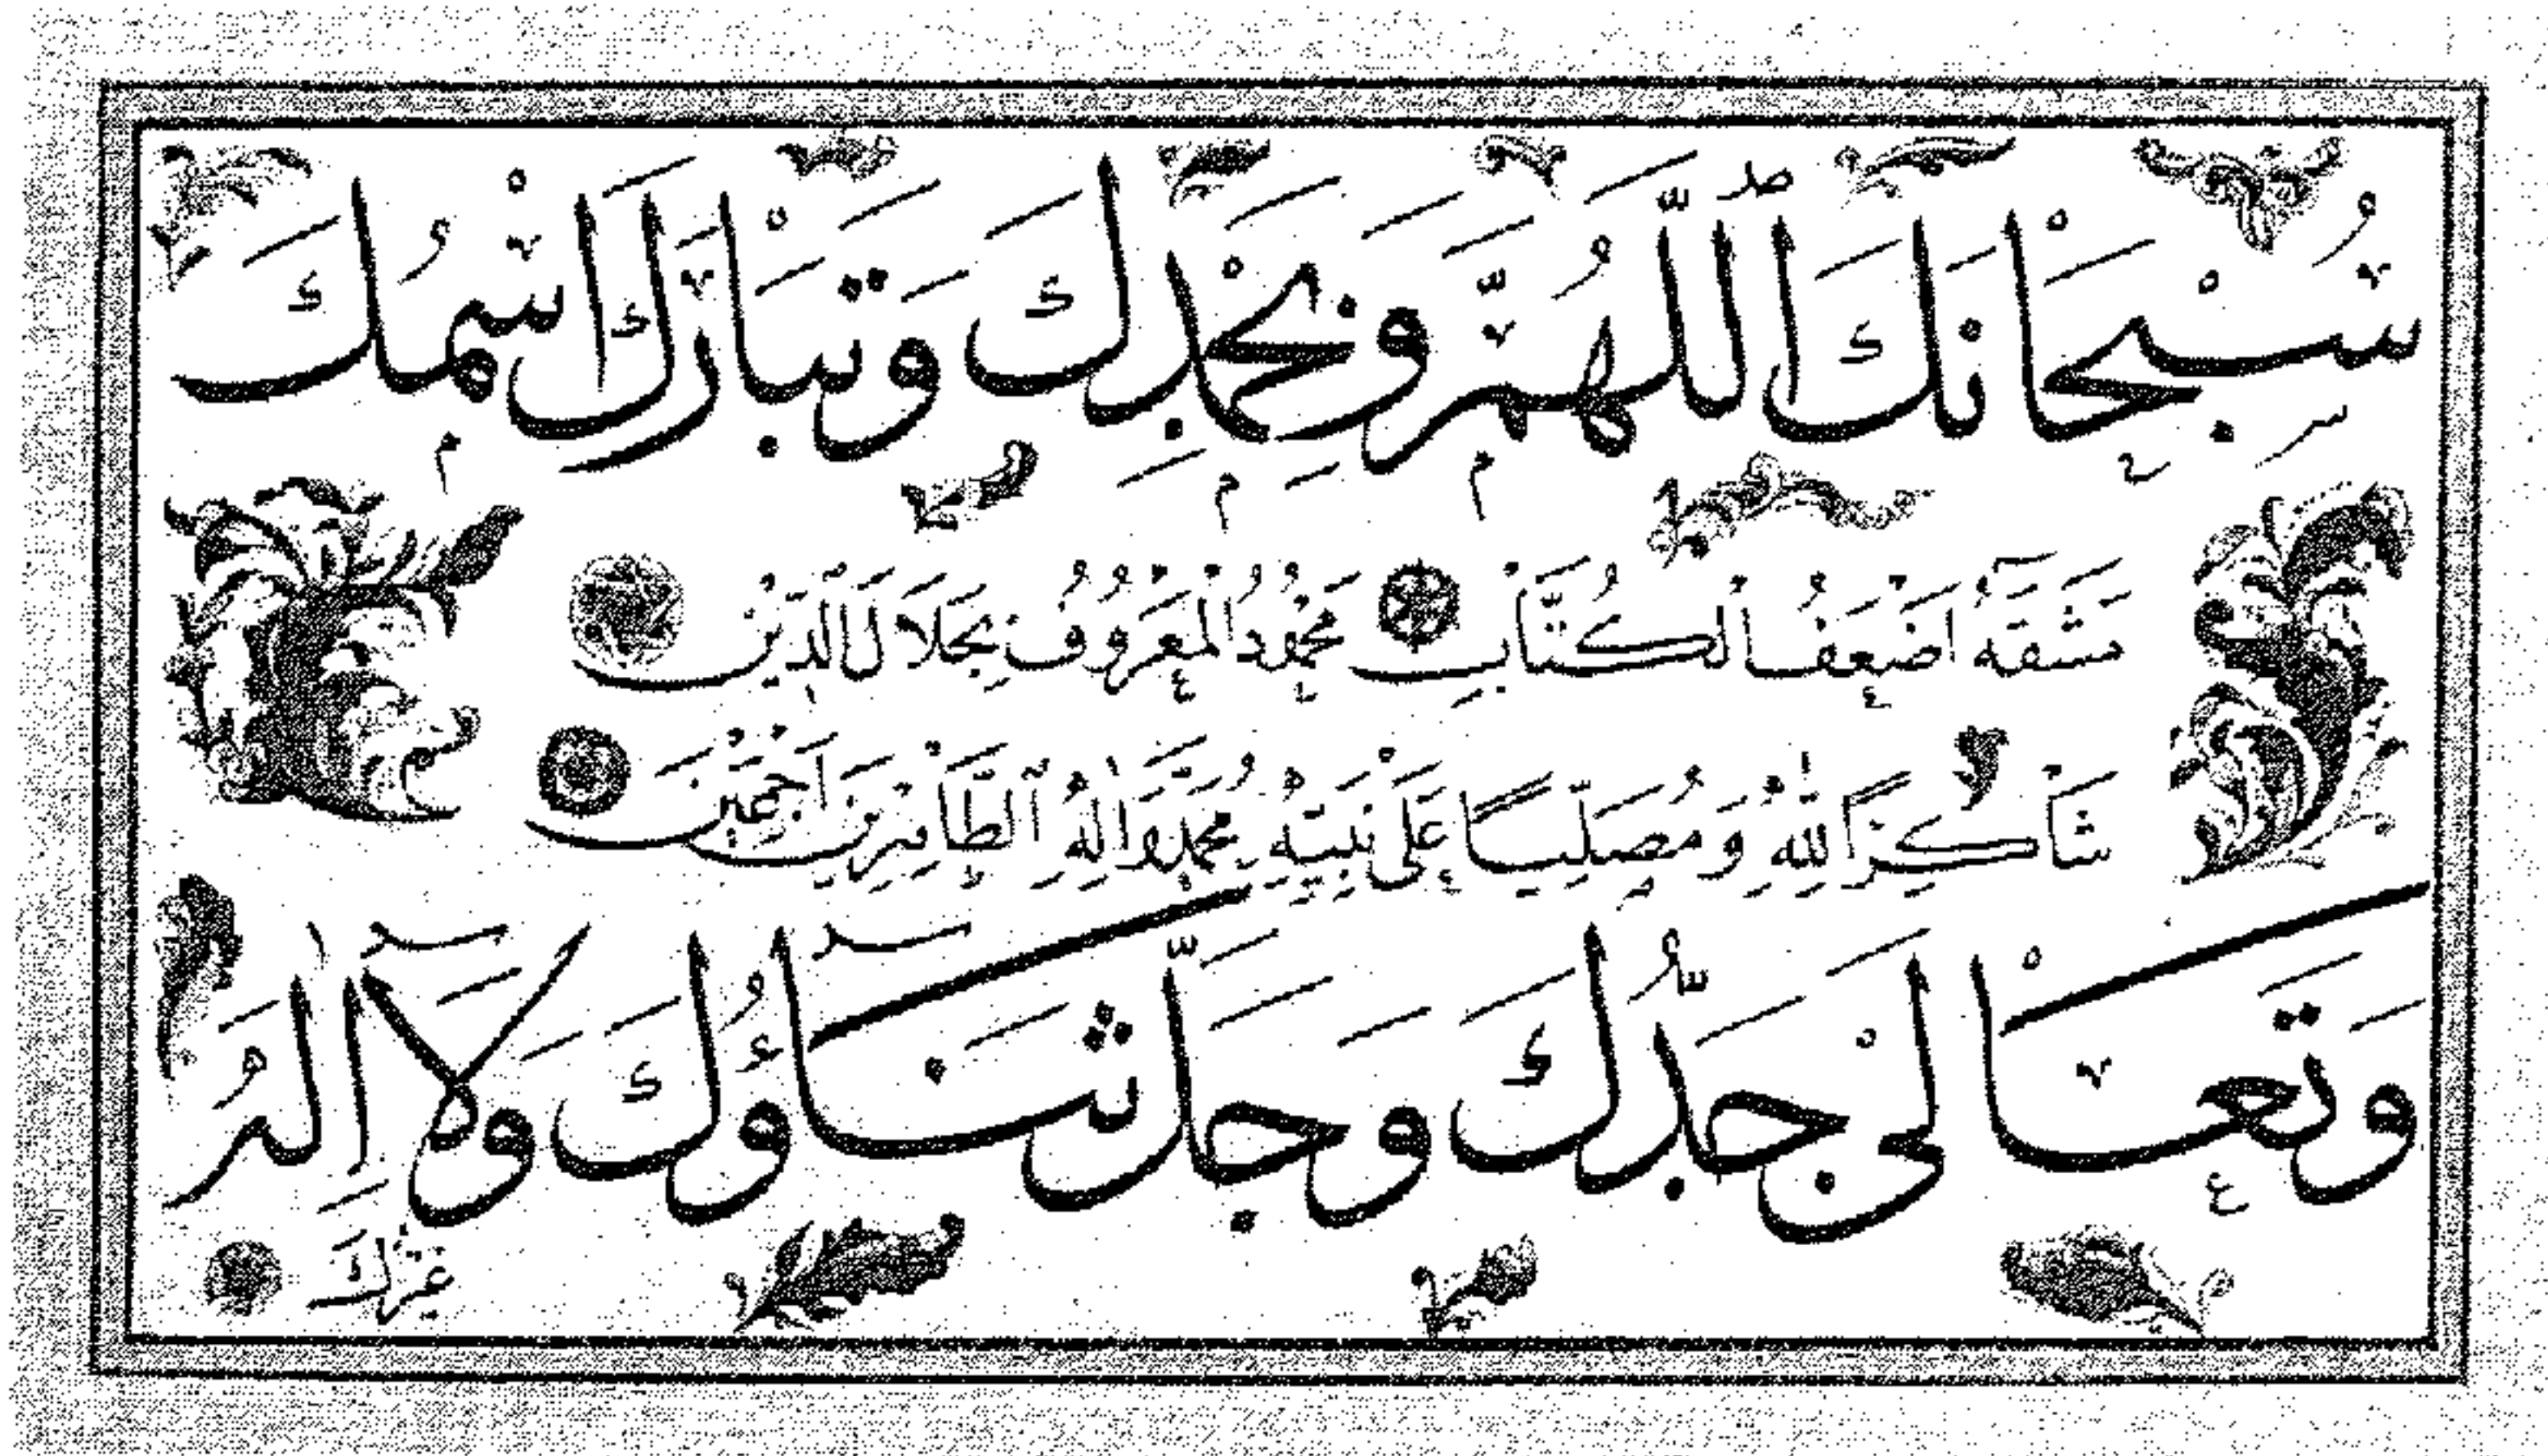 سُبْحَانَكَ اللّٰهُمَّ وَبِحَمْدِكَ وَتَبَارَكَ اسْمُكَ
مَشَقَهُ اَضْعَفُ الْكُتَّابِ مَحْمُودُ الْمَعْرُوفُ بِجَلَالَ الدِّينْ
شَاكِرًا لِلّٰهِ وَمُصَلِّيًا عَلٰى نَبِيِّهِ مُحَمَّدٍ وَاٰلِهِ الطَّاهِرِينَ اَجْمَعِينَ
وَتَعَالٰى جَدُّكَ وَجَلَّ ثَنَاؤُكَ وَلَا اِلٰهَ
غَيْرُكَ